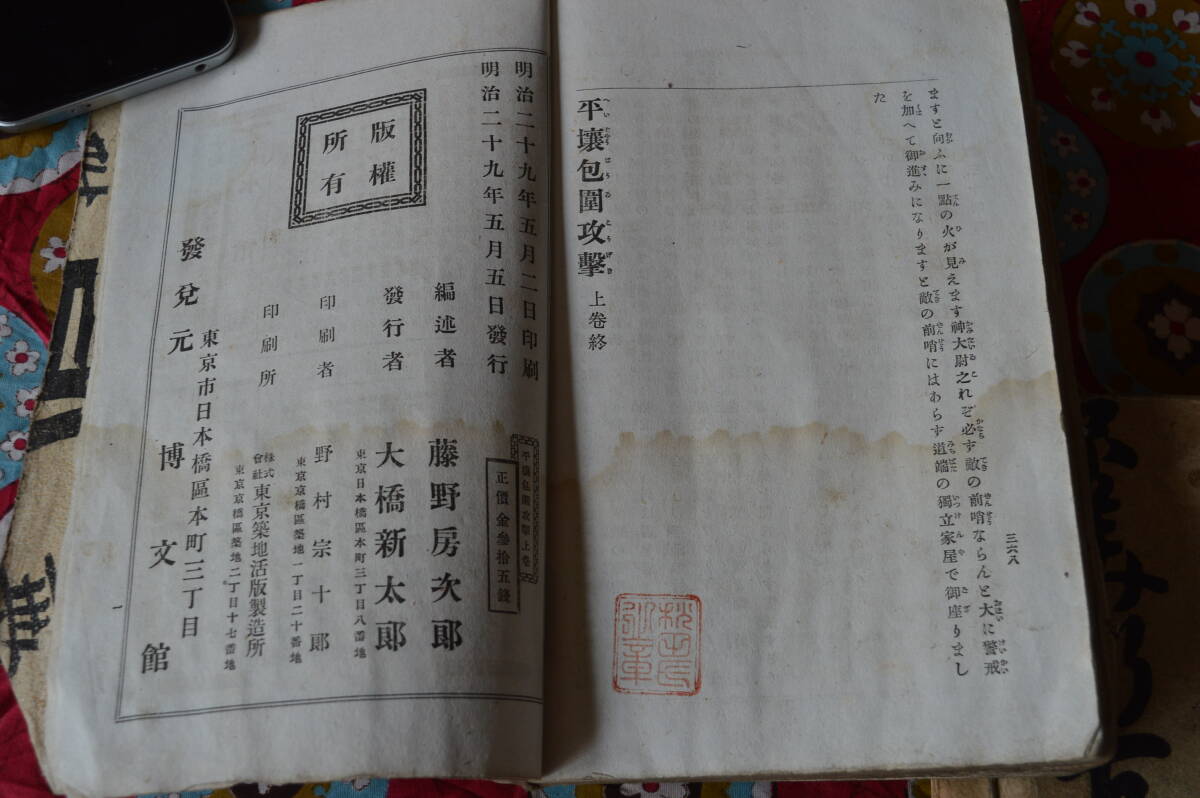 三六八
ますと向ふに一點の火が見えます神大尉之れぞ必ず敵の前哨ならんと大に警戒
を加へて御進みになりますと敵の前哨にはあらず道端の獨立家屋で御座りまし
た
平壤包圍攻擊 上卷終
明治二十九年五月二日印刷
明治二十九年五月五日發行
版權
所有
平壤包圍攻擊上卷
正價金參拾五錢
編述者 藤野房次郎
發行者 大橋新太郎
東京日本橋區本町三丁目八番地
印刷者 野村宗十郎
東京京橋區築地一丁目二十番地
印刷所 株式會社東京築地活版製造所
東京京橋區築地二丁目十七番地
發兌元 東京市日本橋區本町三丁目
博文館
一